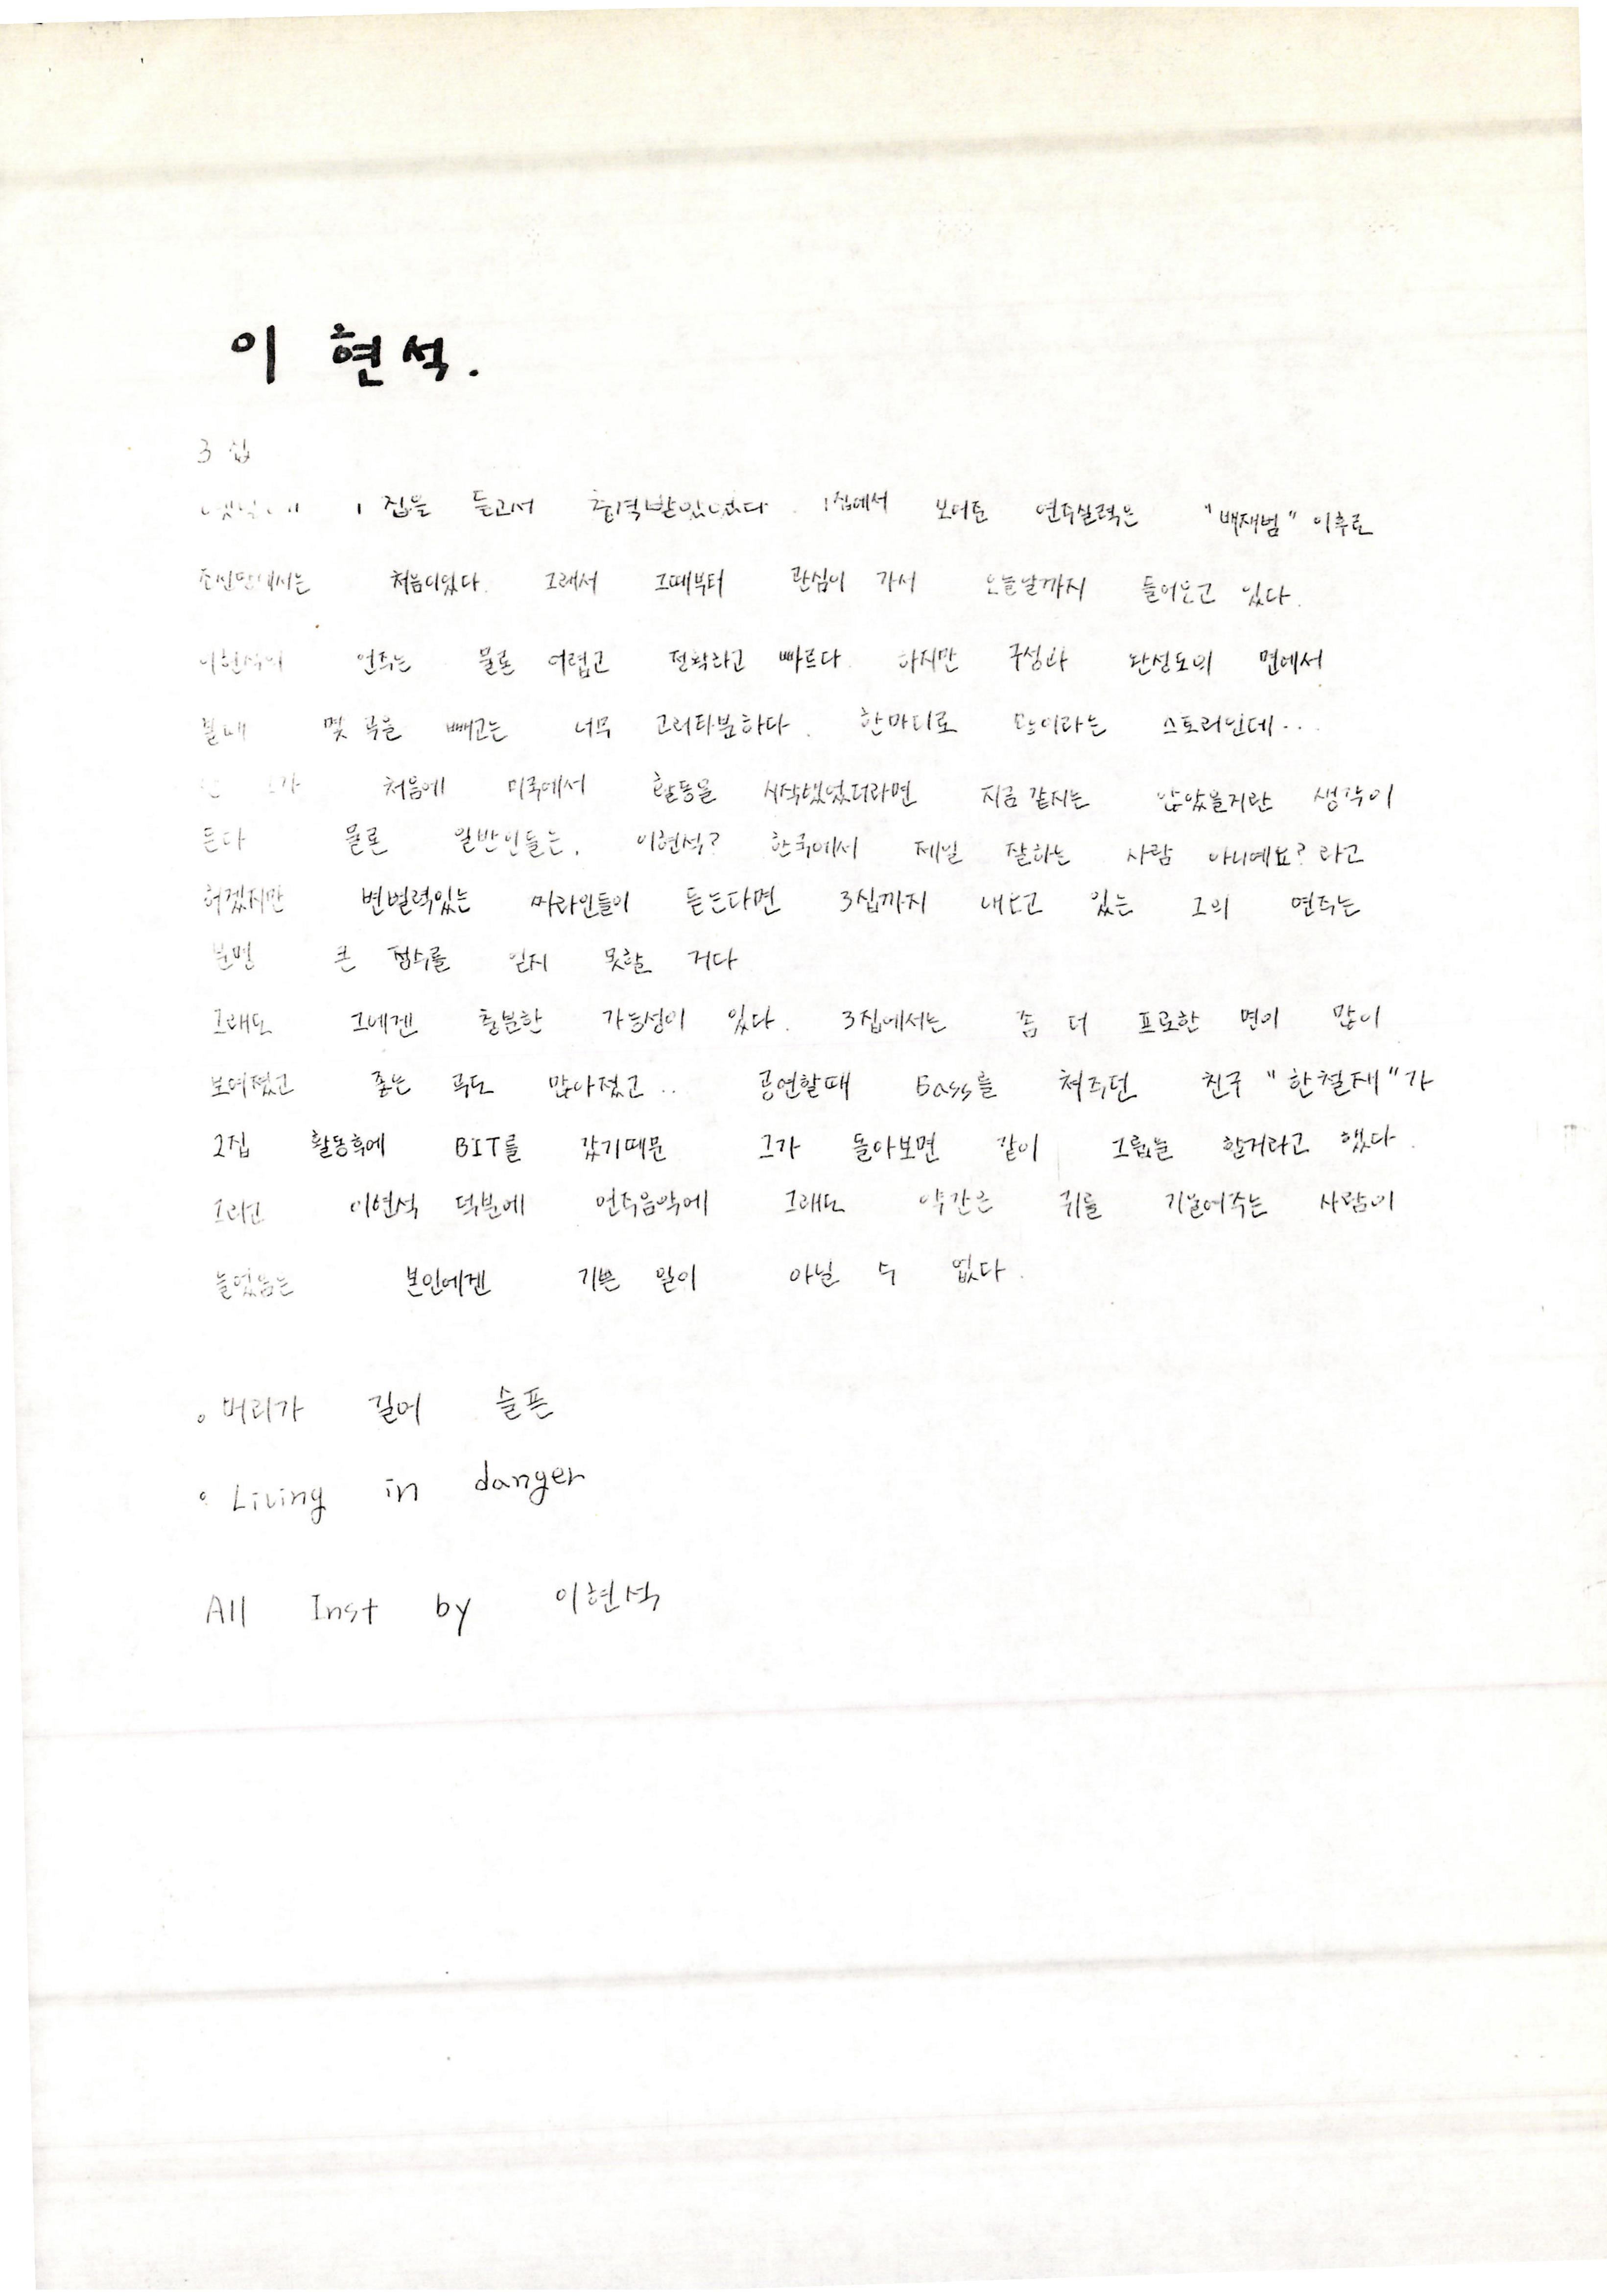 이 현석.
3 집
1집을 듣고서 충격받았었다. 1집에서 보여준 연주실력은 "백재범" 이후로
조선땅에서는 처음이었다. 그래서 그때부터 관심이 가서 오늘날까지 들어오고 있다.
이현석의 연주는 물론 어렵고 정확하고 빠르다. 하지만 구성과 완성도의 면에서
몇 곡을 빼고는 너무 고리타분하다. 한마디로 스토리인데...
처음에 미국에서 활동을 시작했었더라면 지금 같지는 않았을거란 생각이
든다 물론 일반인들은, 이현석? 한국에서 제일 잘하는 사람 아니예요? 라고
하겠지만 변별력있는 매니아들이 듣는다면 3집까지 내오고 있는 그의 연주는
분명 큰 점수를 얻지 못할 거다
그래도 그에겐 충분한 가능성이 있다. 3집에서는 좀 더 프로한 면이 많이
보여졌고 좋은 곡도 많아졌고.. 공연할때 Bass를 쳐주던 친구 "한철재"가
2집 활동후에 BIT를 갔기때문 그가 돌아보면 같이 그룹을 할거라고 했다.
그리고 이현석 덕분에 연주음악에 그래도 약간은 귀를 기울여주는 사람이
늘었음은 본인에겐 기쁜 일이 아닐 수 없다.
◦ 머리가 길어 슬픈
◦ Living in danger
All Inst by 이현석